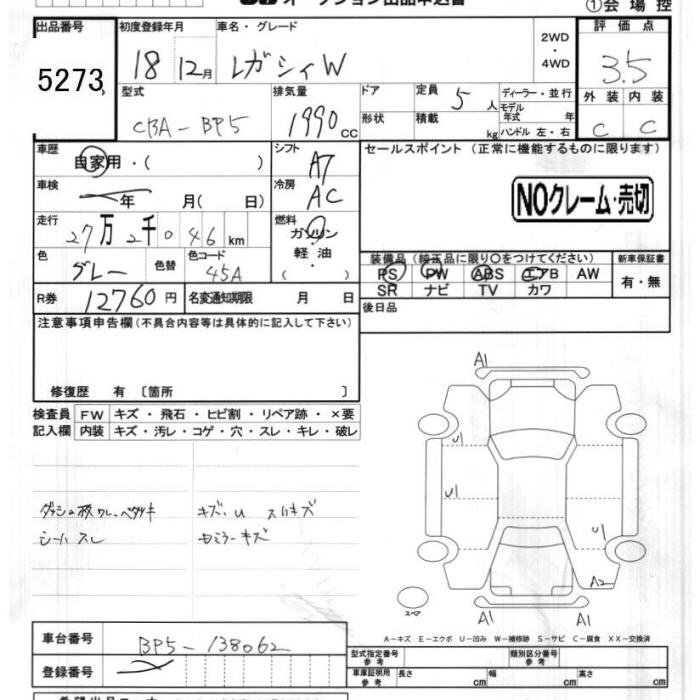 オークション出品申込書
①会場控
出品番号
5273
初度登録年月
18 12月
車名・グレード
レガシィW
2WD
・
4WD
評価点
3.5
外装 内装
C C
型式
CBA-BP5
排気量
1990cc
ドア
形状
定員 5人
積載 kg
ディーラー・並行
モデル年式 年
ハンドル 左・右
車歴
自家用・( )
シフト
A7
車検
年 月( 日)
冷房
AC
走行
27万2千046km
燃料
ガソリン
軽油・
( )
色
グレー
色替
色コード
45A
R券 12760円
名変通知期限 月 日
セールスポイント(正常に機能するものに限ります)
NOクレーム・売切
装備品(純正品に限り〇をつけてください)
PS PW ABS エアB AW
SR ナビ TV カワ
新車保証書
有・無
後日品
注意事項申告欄(不具合内容等は具体的に記入して下さい)
修復歴 有〔箇所 〕
検査員記入欄
FW キズ・飛石・ヒビ割・リペア跡・×要
内装 キズ・汚レ・コゲ・穴・スレ・キレ・破レ
ダッシュ板ワレ、ベタツキ
シートスレ
キズ、U スリキズ
セミラーキズ
A1
U1
U1
U1
A2
A1
A1
スペア
A-キズ E-エクボ U-凹み W-補修跡 S-サビ C-腐食 XX-交換済
車台番号 BP5-138062
登録番号
型式指定番号 参考
類別区分番号 参考
車庫証明用 参考
長さ cm 幅 cm 高さ cm